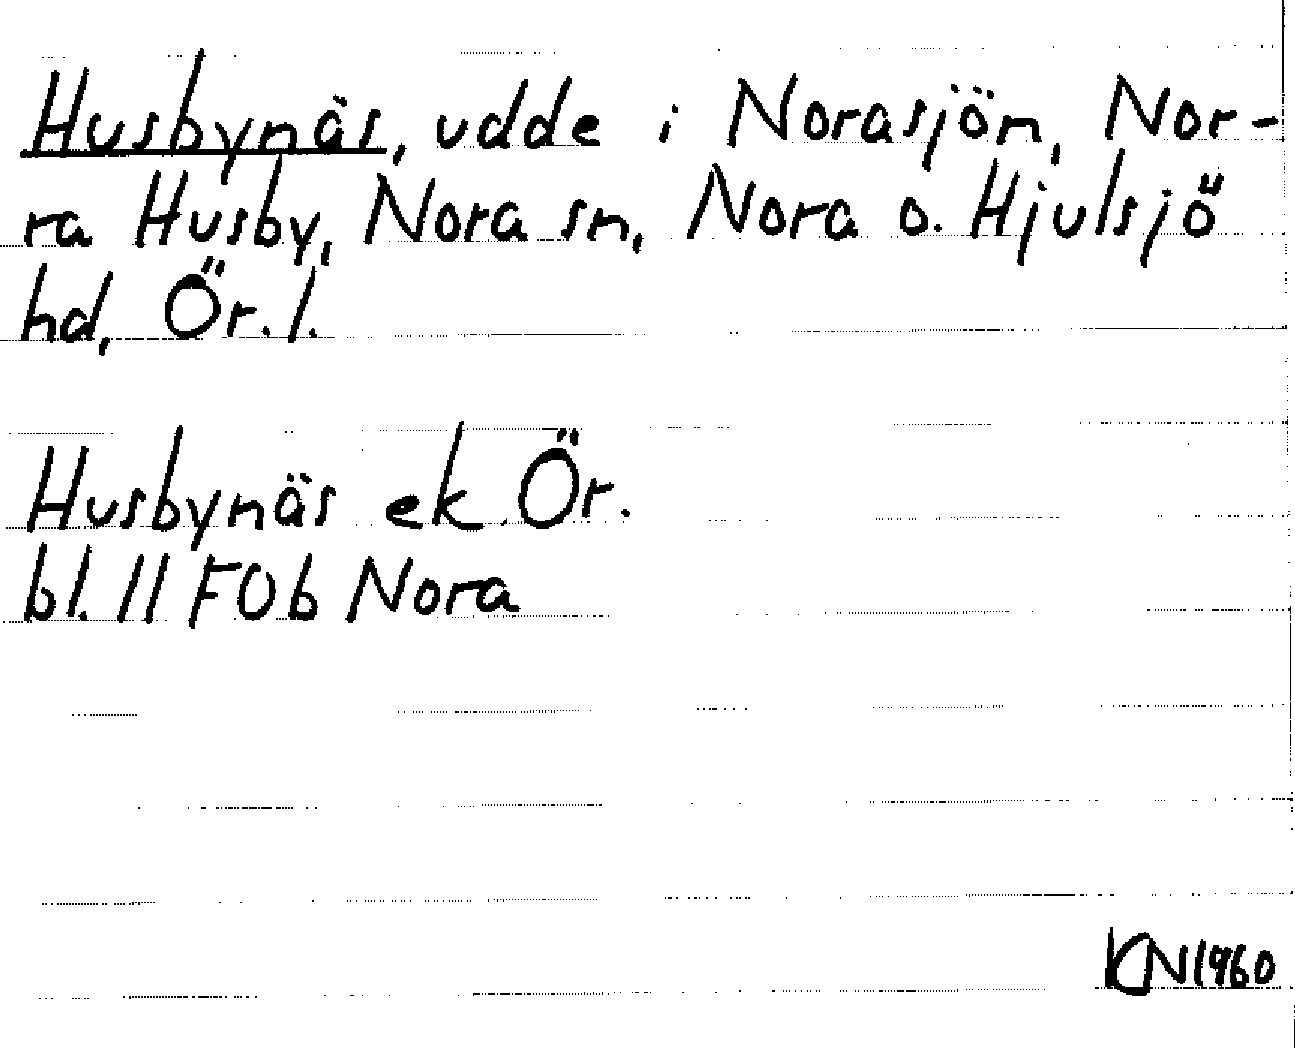 Husbynäs, udde i Norasjön, Nor-
ra Husby, Nora sn, Nora o. Hjulsjö
hd, Ör. l.
Husbynäs ek Ör.
bl. 11 F0b Nora
KN1960